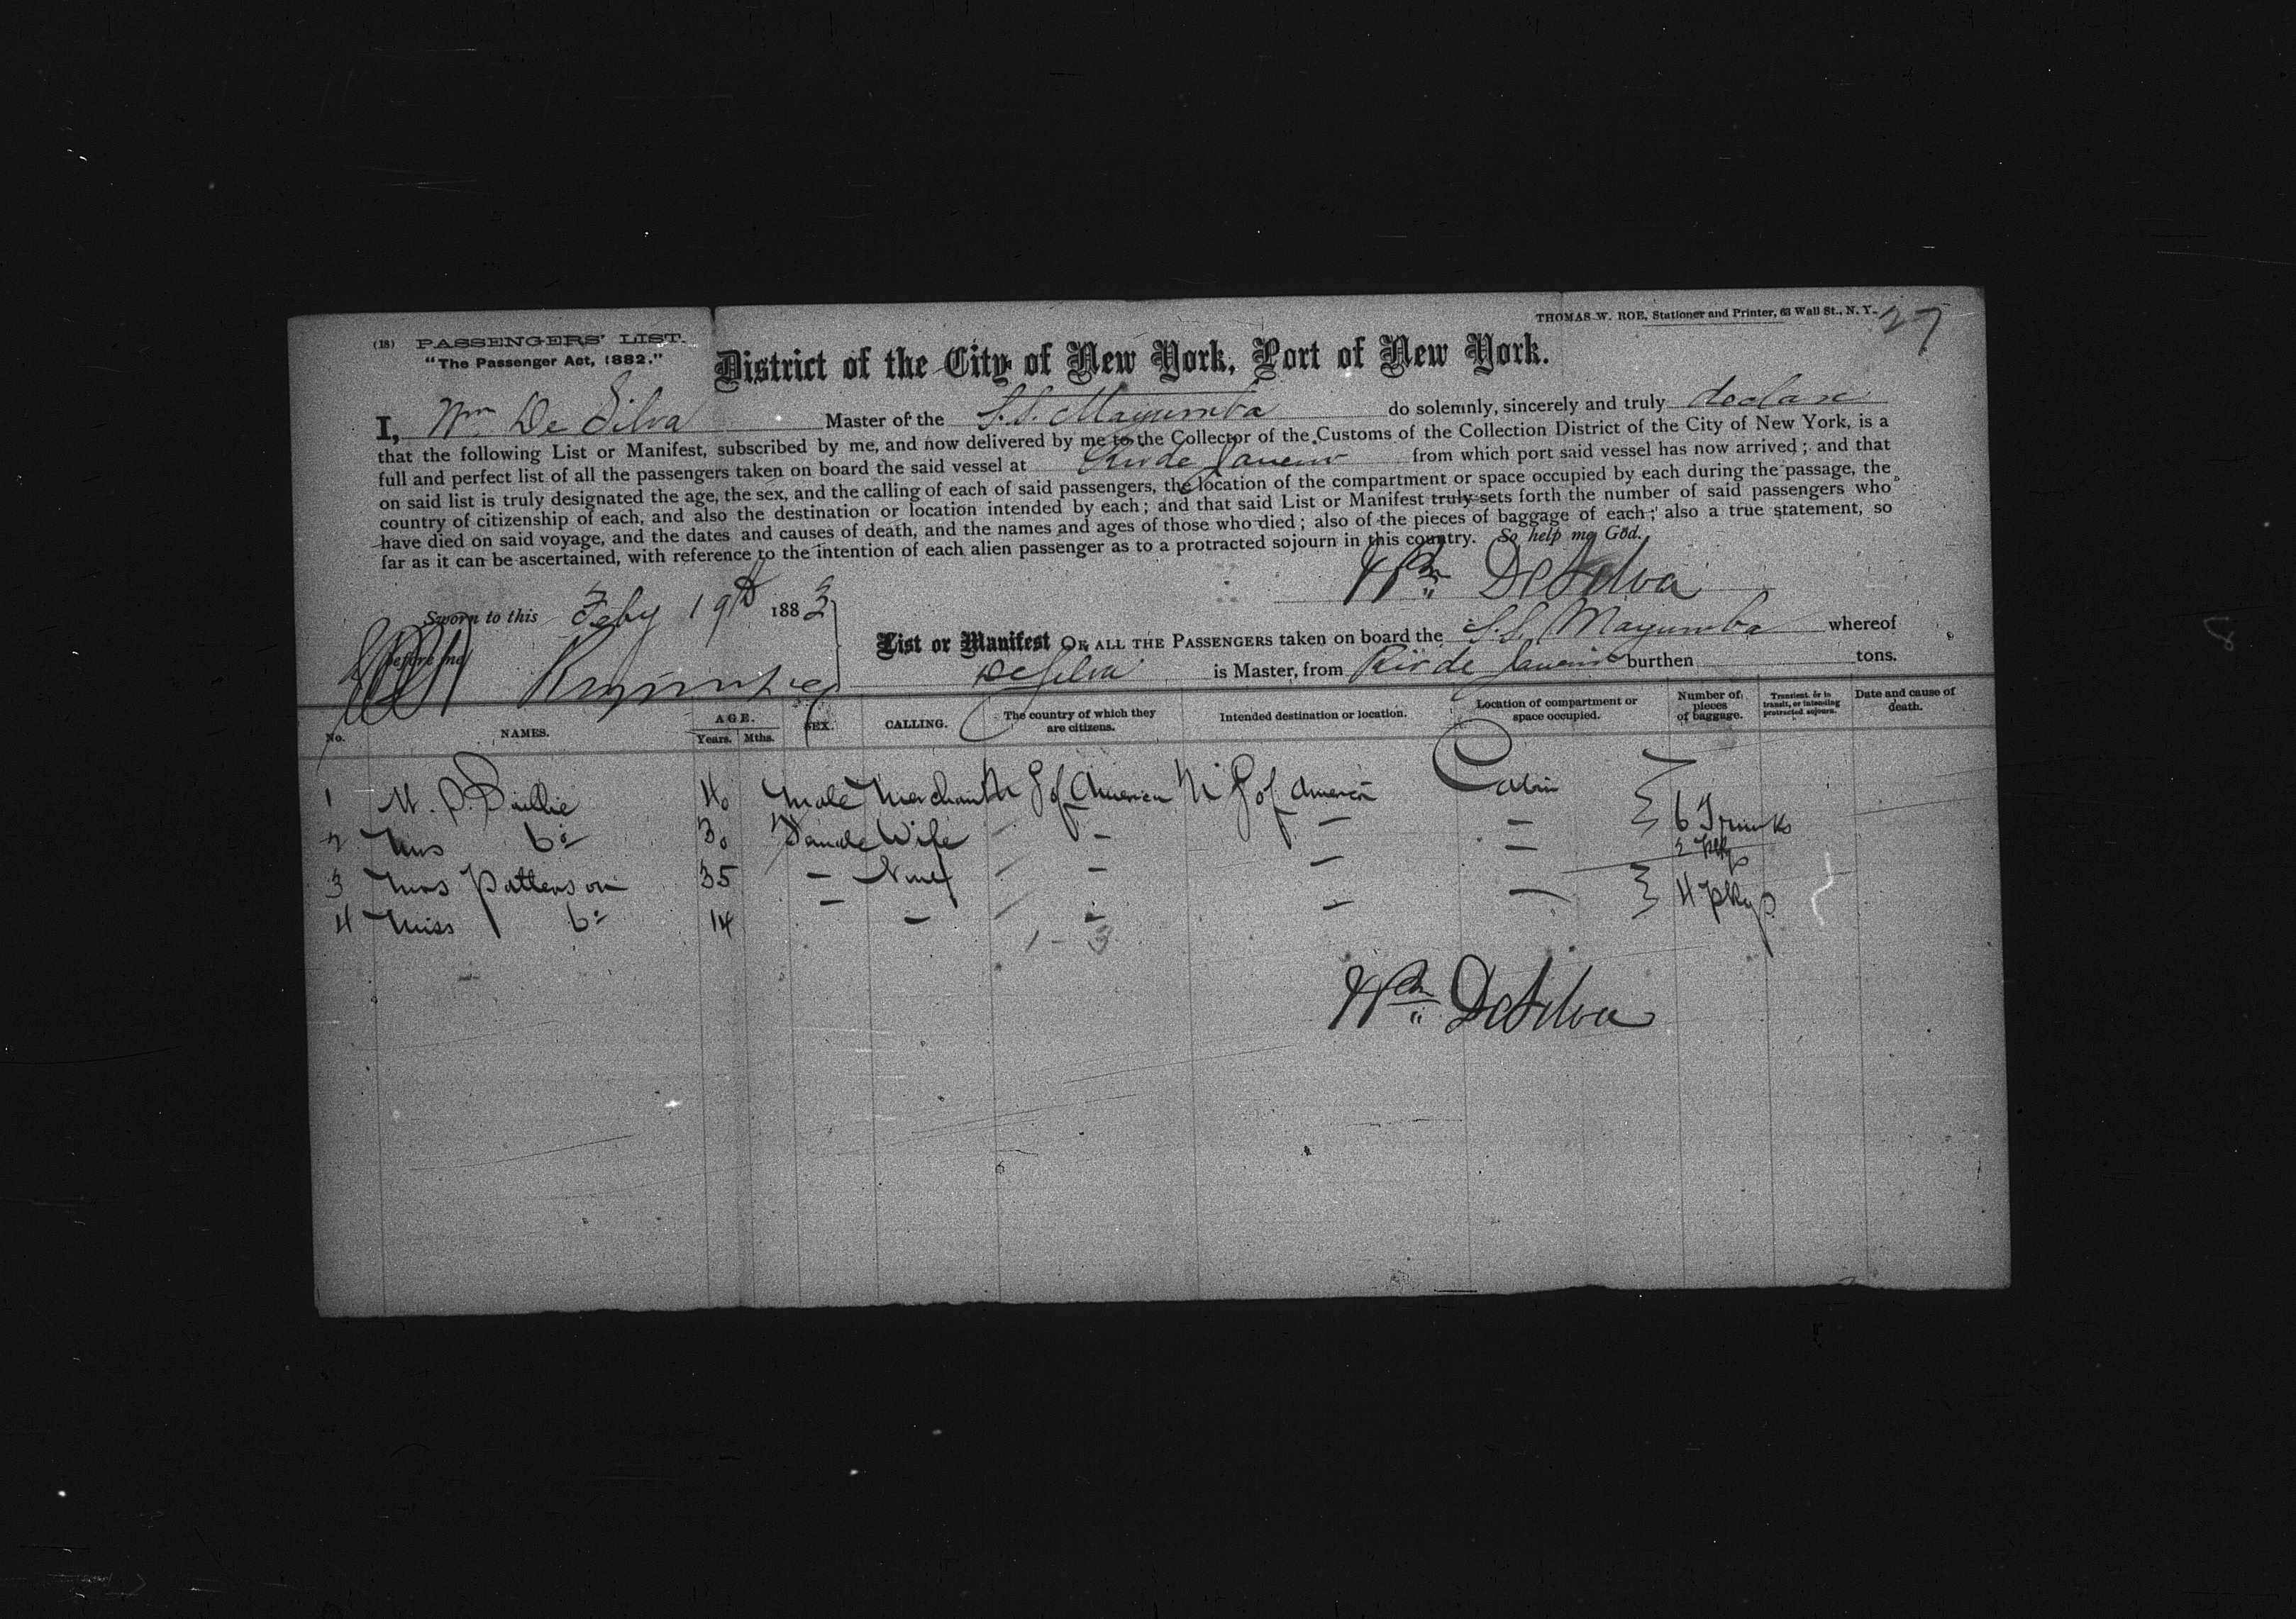 THOMAS W. ROE, Stationer and Printer, 63 Wall St., N. Y.
27
(18) PASSENGERS' LIST.
"The Passenger Act, 1882."
District of the City of New York, Port of New York.
I, Wm De Silva Master of the S.S. Mayumba do solemnly, sincerely and truly declare
that the following List or Manifest, subscribed by me, and now delivered by me to the Collector of the Customs of the Collection District of the City of New York, is a
full and perfect list of all the passengers taken on board the said vessel at Rio de Janeiro from which port said vessel has now arrived; and that
on said list is truly designated the age, the sex, and the calling of each of said passengers, the location of the compartment or space occupied by each during the passage, the
country of citizenship of each, and also the destination or location intended by each; and that said List or Manifest truly sets forth the number of said passengers who
have died on said voyage, and the dates and causes of death, and the names and ages of those who died; also of the pieces of baggage of each; also a true statement, so
far as it can be ascertained, with reference to the intention of each alien passenger as to a protracted sojourn in this country. So help me God.
Wm DeSilva
Sworn to this Feby 19th 1883
before me
List or Manifest OF ALL THE PASSENGERS taken on board the S.S. Mayumba whereof
DeSilva is Master, from Rio de Janeiro burthen tons.
No. NAMES. AGE. Years. Mths. SEX. CALLING. The country of which they are citizens. Intended destination or location. Location of compartment or space occupied. Number of pieces of baggage. Transient, or in transit, or intending protracted sojourn. Date and cause of death.
1 40 Male Merchant U S of America U S of America Cabin
2 Mrs Do 30 Female Wife - - - - 6 Trunks
2 pkgs
3 Mrs Patterson 35 - None - - - -
4 Miss Do 14 - - - - - - 4 pkgs
1 - 3
Wm DeSilva